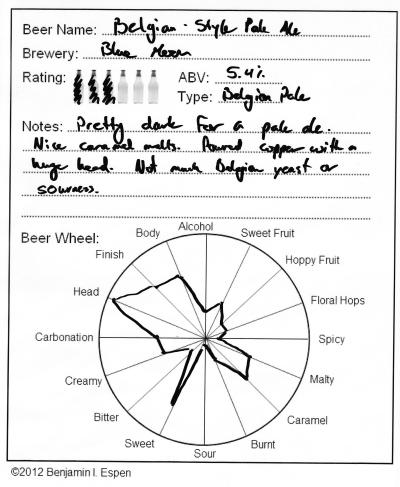 Beer Name: Belgian-Style Pale Ale
Brewery: Blue Moon
Rating:
ABV: 5.4%
Type: Belgian Pale
Notes: Pretty dark for a pale ale.
Nice caramel malts. Poured copper with a
huge head. Not much Belgian yeast or
sourness.
Beer Wheel:
Alcohol
Body
Sweet Fruit
Finish
Hoppy Fruit
Head
Floral Hops
Carbonation
Spicy
Creamy
Malty
Bitter
Caramel
Sweet
Burnt
Sour
©2012 Benjamin I. Espen